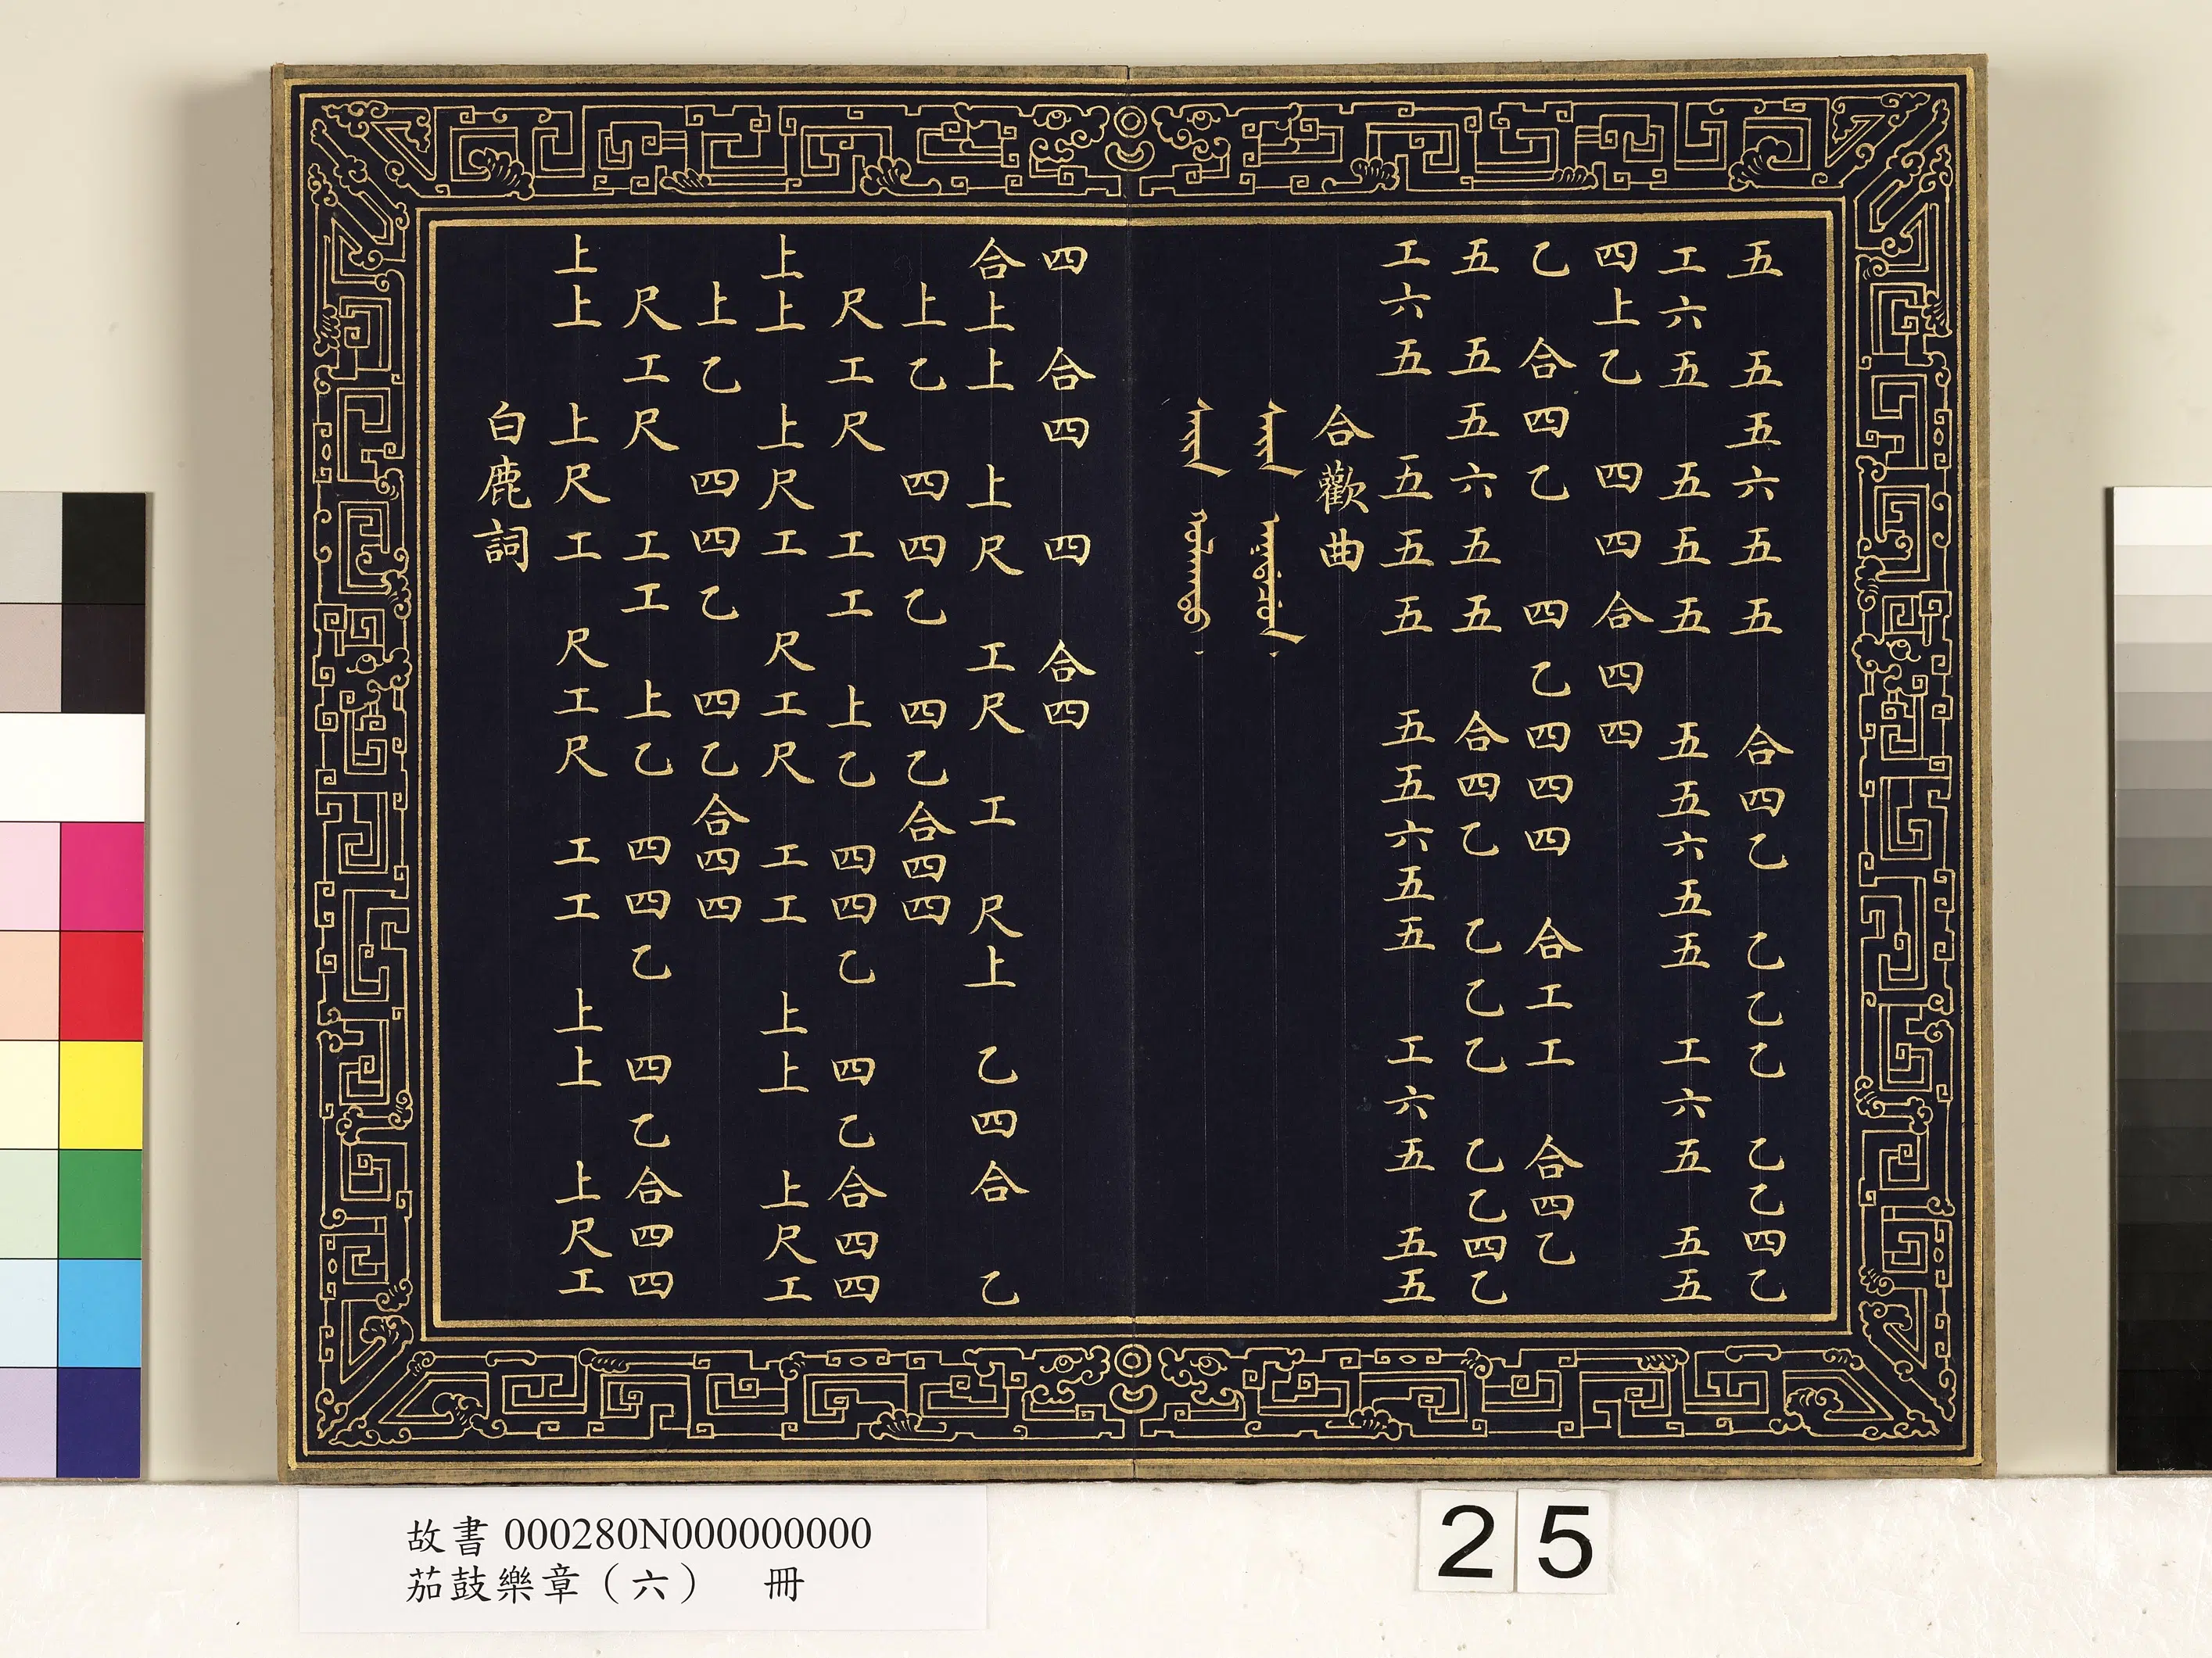 五 五五六五五 合四乙 乙乙乙 乙乙四乙
工六五 五五五 五五六五五 工六五 五五
四上乙 四四合四四
乙 合四乙 四乙四四四 合工工 合四乙
五 五五六五五 合四乙 乙乙乙 乙乙四乙
工六五 五五五 五五六五五 工六五 五五
合歡曲
四 合四 四 合四
合上上 上尺 工尺 工 尺上 乙四合 乙
上乙 四四乙 四乙合四四
尺工尺 工工 上乙 四四乙 四乙合四四
上上 上尺工 尺工尺 工工 上上 上尺工
上乙 四四乙 四乙合四四
尺工尺 工工 上乙 四四乙 四乙合四四
上上 上尺工 尺工尺 工工 上上 上尺工
白鹿詞
故書 000280N000000000
茄鼓樂章（六） 冊
25